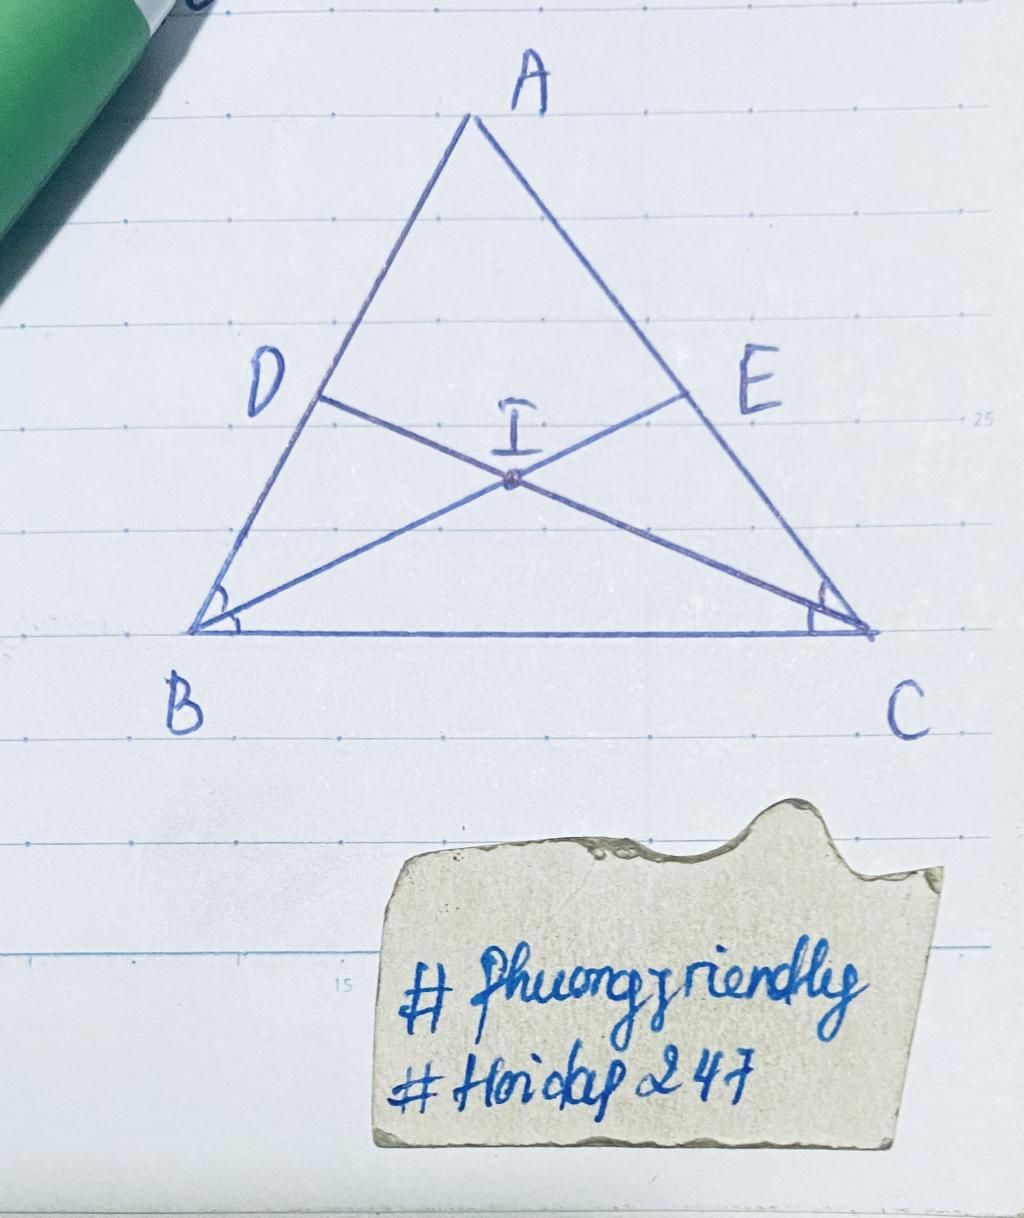 A
D
E
I
B
C
25
15
# Phuongfriendly
# Hoidap 247